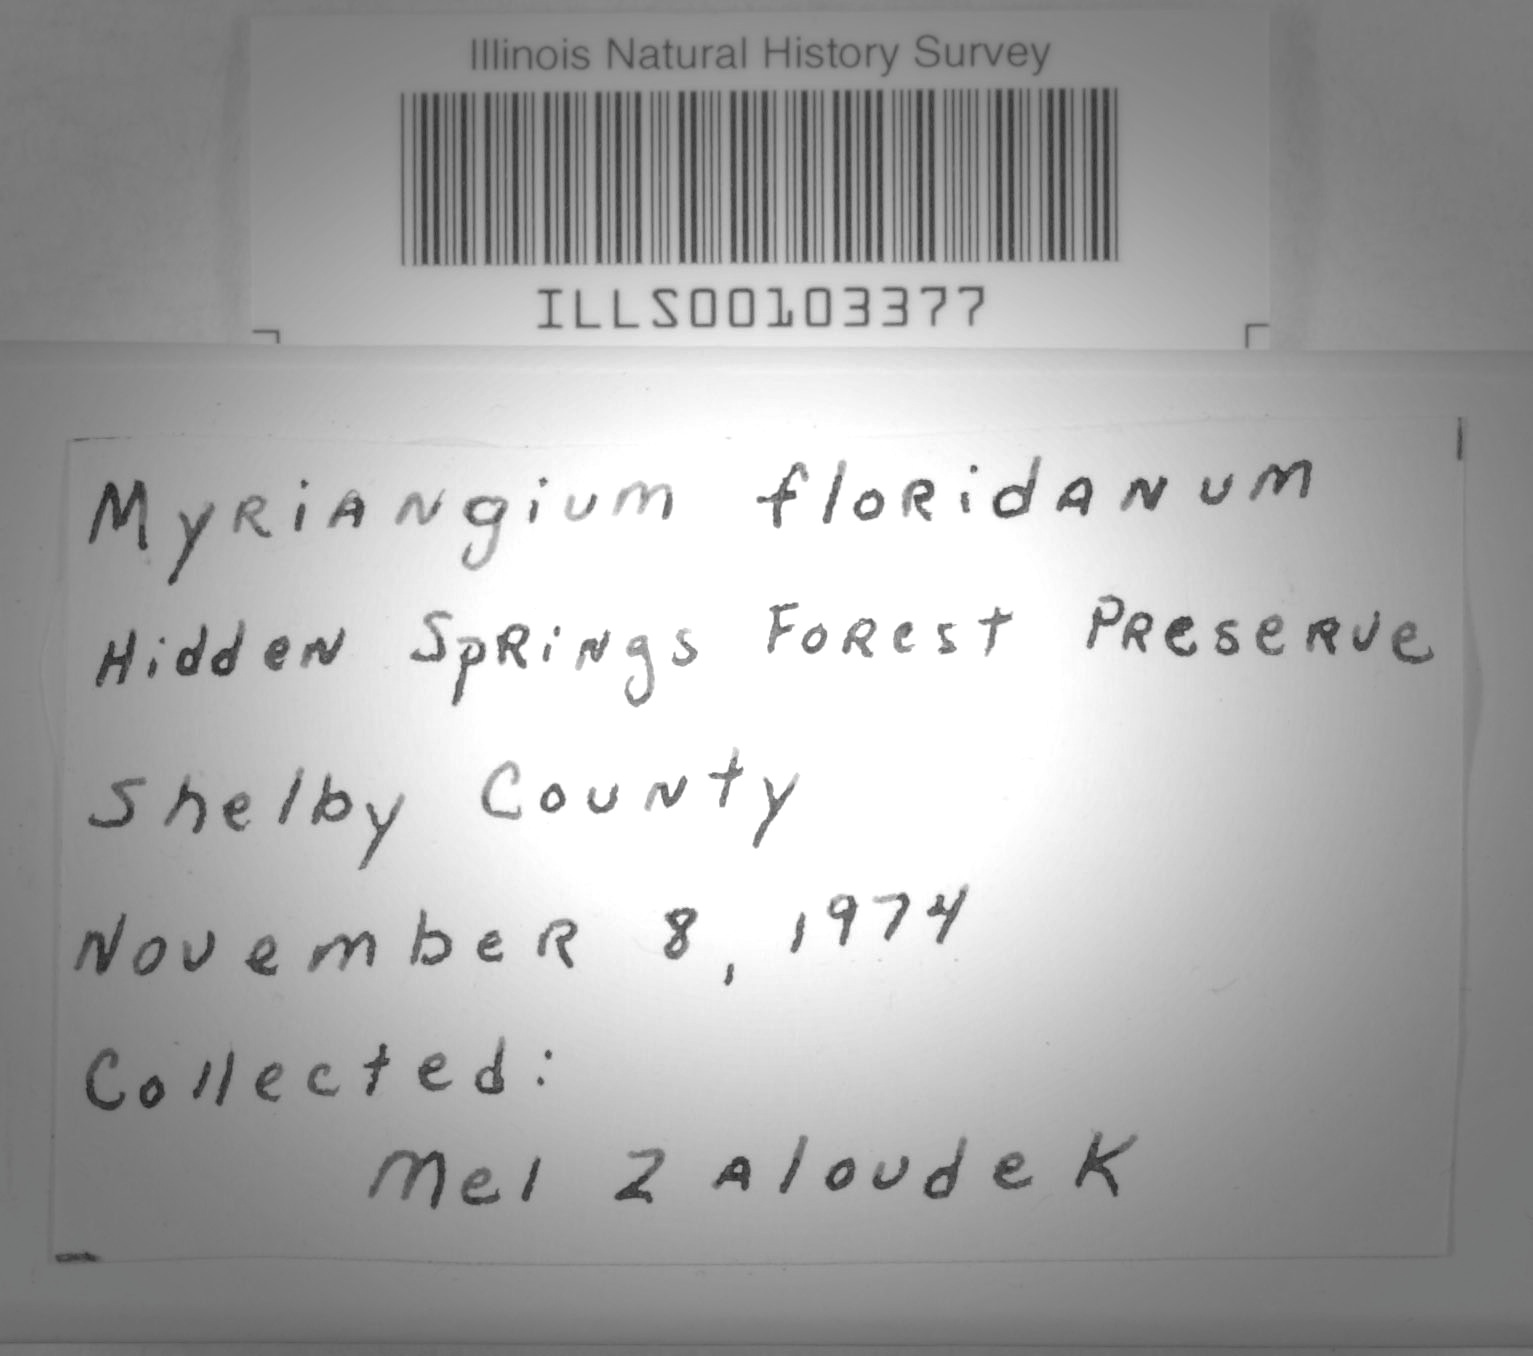 Illinois Natural History Survey
ILLS00103377
Myriangium floridanum
Hidden Springs Forest Preserve
Shelby County
November 8, 1974
Collected:
Mel Zaloudek